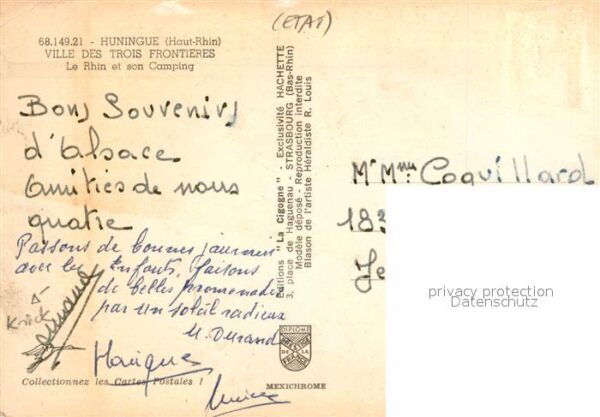 (ETAT)
68.149.21 - HUNINGUE (Haut-Rhin)
VILLE DES TROIS FRONTIERES
Le Rhin et son Camping
Bons Souvenirs
d'alsace
Amitiés de nous
quatre
Passons de bonnes journées
avec les Enfants, faisons
de belles promenades
par un soleil radieux
M. Durand
Knick
Collectionnez les Cartes Postales !
Editions "La Cigogne" - Exclusivité HACHETTE
3, place de Haguenau - STRASBOURG (Bas-Rhin)
Modèle déposé - Reproduction interdite
Blason de l'artiste Héraldiste R. Louis
DIPLOME
PRESTIGE
DE LA
FRANCE
MEXICHROME
Mr Mme Coquillard
183
Je
privacy protection
Datenschutz